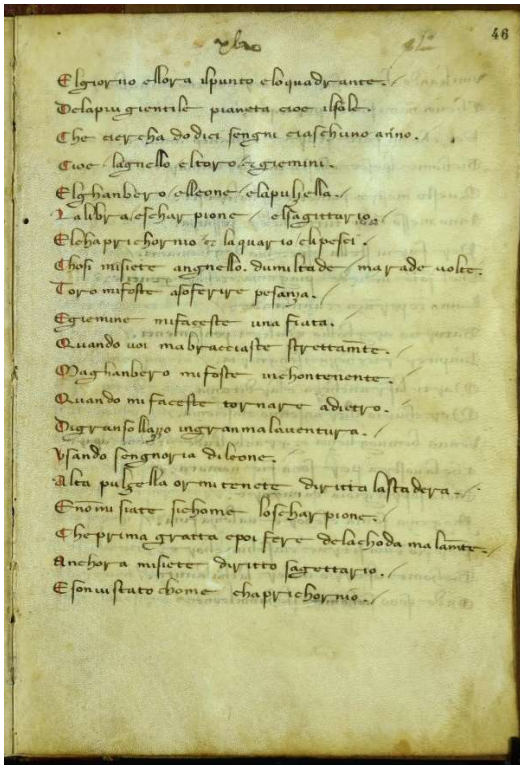 46
Elgiorno ellora ilpunto eloquadrante.
Delapiugientile pianeta cioe ilsole.
Che ciercha dodici sengni ciaschuno anno.
Cioe lagnello eltoro & giemini.
Elghanbero elleone elapulzella.
Lalibra escharpione elsagittario.
Elchaprichornio & laquario elipesci.
Chosi misiete angnello. dumiltade marade volte.
Toro mifoste asoferire pesanza.
Egiemine mifaceste una fiata.
Quando voi mabracciaste strettamte.
Maghanbero mifoste inchontenente.
Quando mifaceste tornare adietro.
Digransollazzo ingranmalaventura.
Usando sengnoria dileone.
Alta pulzella ormitenete diritta lastadera.
Enomi siate sichome loscharpione.
Cheprima gratta epoi fere delachoda malamte.
Anchora misiete diritto sagettario.
Esonvistato chome chaprichornio.